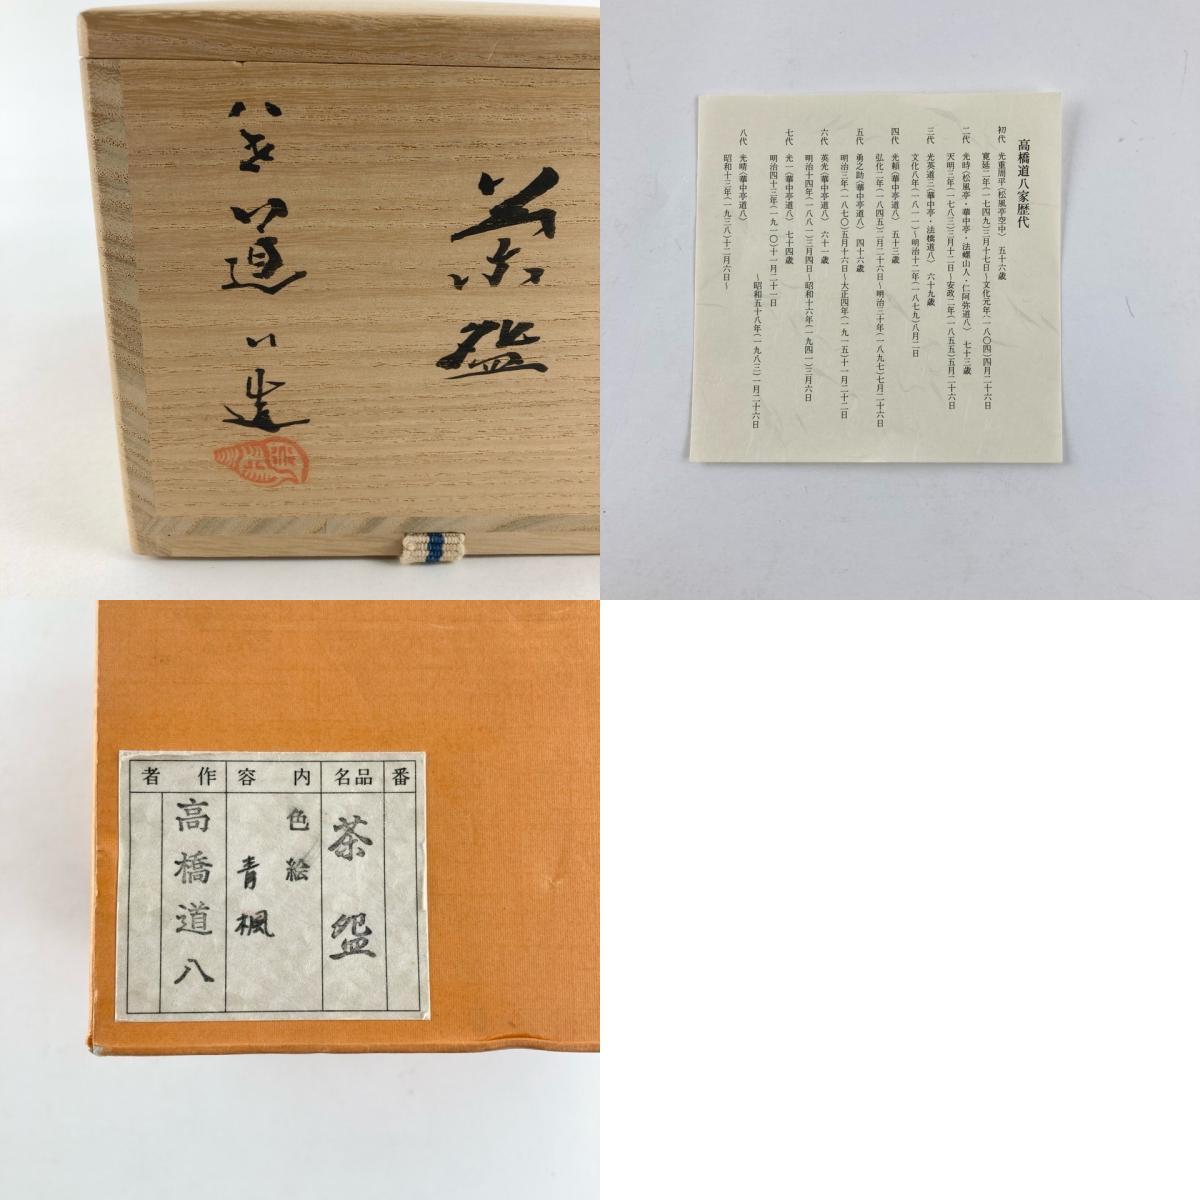 茶盌
八世道八造
高橋道八家歴代
初代 光重周平(松風亭空中) 五十六歳
寛延二年(一七四九)三月十七日～文化元年(一八〇四)四月二十六日
二代 光時(松風亭・華中亭・法螺山人・仁阿弥道八) 七十三歳
天明三年(一七八三)三月十二日～安政二年(一八五五)五月二十六日
三代 光英道三(華中亭・法橋道八) 六十九歳
文化八年(一八一一)～明治十二年(一八七九)八月二日
四代 光頼(華中亭道八) 五十三歳
弘化二年(一八四五)二月二十六日～明治三十年(一八九七)七月二十六日
五代 勇之助(華中亭道八) 四十六歳
明治三年(一八七〇)五月十六日～大正四年(一九一五)十一月二十二日
六代 英光(華中亭道八) 六十一歳
明治十四年(一八八一)三月四日～昭和十六年(一九四一)三月六日
七代 光一(華中亭道八) 七十四歳
明治四十三年(一九一〇)十一月二十一日
～昭和五十八年(一九八三)一月二十六日
八代 光晴(華中亭道八)
昭和十三年(一九三八)十二月六日～
番
品名
茶盌
内容
色絵
青楓
作者
高橋道八